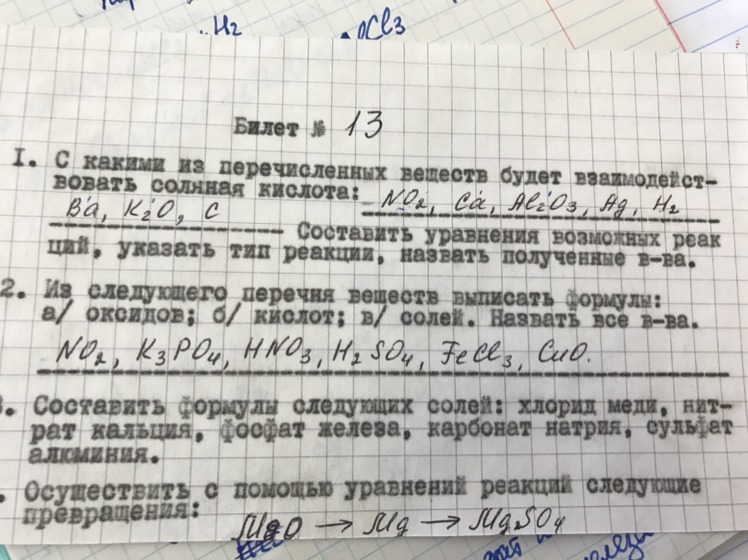 H₂ OCl₃
Билет № 13
I. С какими из перечисленных веществ будет взаимодейст-
вовать соляная кислота: NO₂, Ca, Al₂O₃, Ag, H₂
Ba, K₂O, C Составить уравнения возможных реак
ций, указать тип реакции, назвать полученные в-ва.
2. Из следующего перечня веществ выписать формулы:
а/ оксидов; б/ кислот; в/ солей. Назвать все в-ва.
NO₂, K₃PO₄, HNO₃, H₂SO₄, FeCl₃, CuO.
. Составить формулы следующих солей: хлорид меди, нит-
рат кальция, фосфат железа, карбонат натрия, сульфат
алюминия.
. Осуществить с помощью уравнений реакций следующие
превращения:
MgO → Mg → MgSO₄